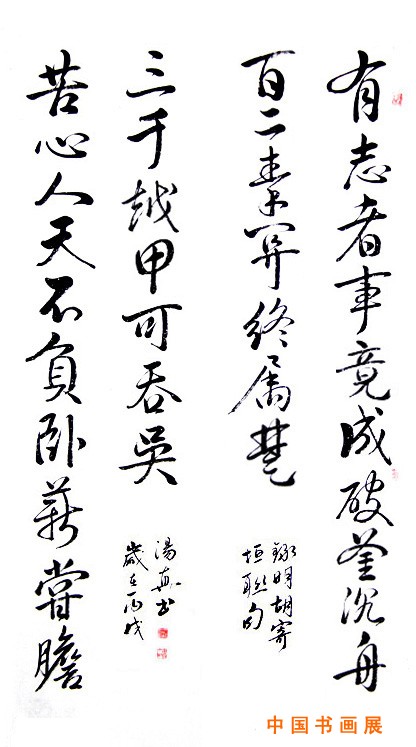 有志者事竟成破釜沉舟
百二秦関終属楚
録明胡寄
垣联句
苦心人天不負卧薪嘗膽
三千越甲可吞吳
湯真书
歲在丙戌
中国书画展